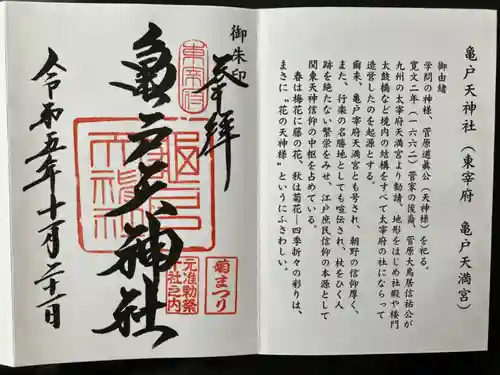 亀戸天神社(東宰府 亀戸天満宮)
御由緒
学問の神様、菅原道真公(天神様)を祀る。
寛文二年(一六六二)菅家の後裔、菅原大鳥居信祐公が
九州の太宰府天満宮より勧請、地形をはじめ社殿や楼門
太鼓橋など境内の結構をすべて太宰府の社にならって
造営したのを起源とする。
爾来、亀戸宰府天満宮とも号され、朝野の信仰厚く、
また、行楽の名勝地としても喧伝され、杖をひく人
跡を絶たない繁栄をみせ、江戸庶民信仰の本源として
関東天神信仰の中枢を占めている。
春は梅花に藤の花、秋は菊花―四季折々の彩りは、
まさに〝花の天神様〟というにふさわしい。
御朱印
奉拝
東宰府
菊まつり
亀戸天神社
元准勅祭
十社之内
令和五年十一月二十一日